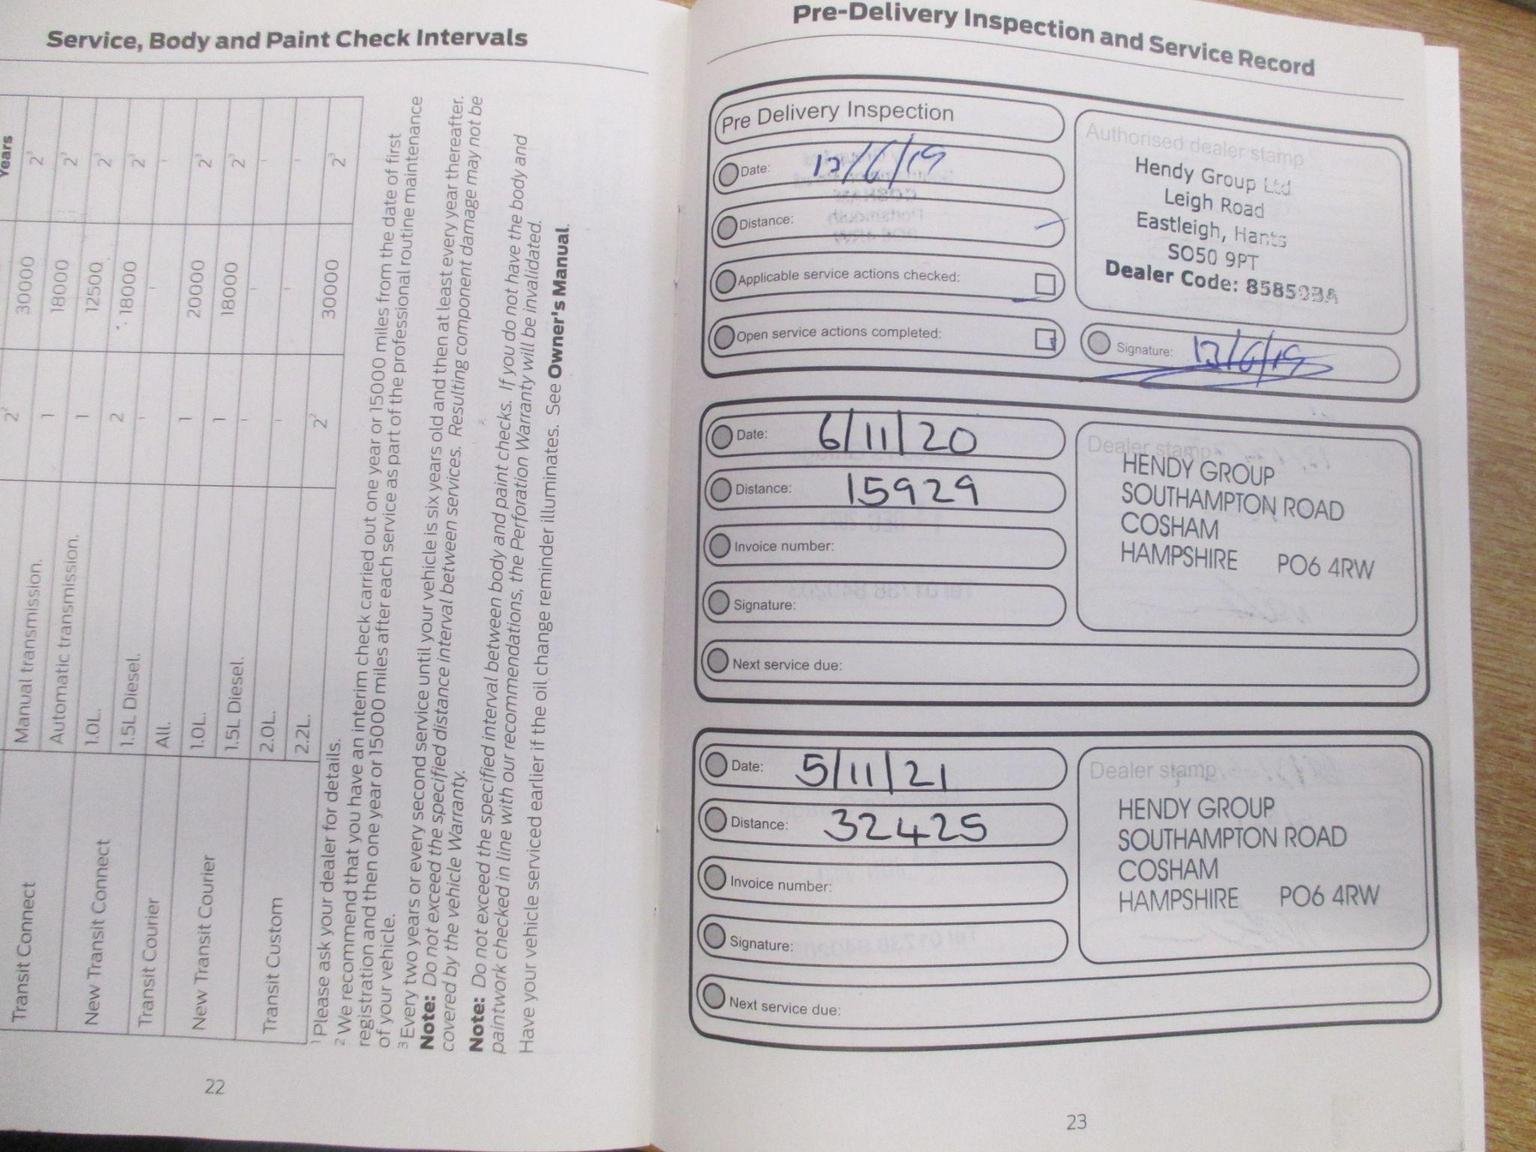 Service, Body and Paint Check Intervals
Years
Transit Connect
Manual transmission. 2² 30000 2³
Automatic transmission. 1 18000 2³
New Transit Connect
1.0L. 1 12500 2³
1.5L Diesel. 2 18000 2³
Transit Courier
All. - - -
New Transit Courier
1.0L. 1 20000 2³
1.5L Diesel. 1 18000 2³
Transit Custom
2.0L. - - -
2.2L. - - -
2² 30000 2³
¹ Please ask your dealer for details.
² We recommend that you have an interim check carried out one year or 15000 miles from the date of first
registration and then one year or 15000 miles after each service as part of the professional routine maintenance
of your vehicle.
³ Every two years or every second service until your vehicle is six years old and then at least every year thereafter.
Note: Do not exceed the specified distance interval between services. Resulting component damage may not be
covered by the vehicle Warranty.
Note: Do not exceed the specified interval between body and paint checks. If you do not have the body and
paintwork checked in line with our recommendations, the Perforation Warranty will be invalidated.
Have your vehicle serviced earlier if the oil change reminder illuminates. See Owner's Manual.
22
Pre-Delivery Inspection and Service Record
Pre Delivery Inspection
Date: 12/6/19
Distance:
Applicable service actions checked:
Open service actions completed:
Authorised dealer stamp
Hendy Group Ltd
Leigh Road
Eastleigh, Hants
SO50 9PT
Dealer Code:
Signature: 12/6/19
Date: 6/11/20
Distance: 15929
Invoice number:
Signature:
Next service due:
Dealer stamp
HENDY GROUP
SOUTHAMPTON ROAD
COSHAM
HAMPSHIRE PO6 4RW
Date: 5/11/21
Distance: 32425
Invoice number:
Signature:
Next service due:
Dealer stamp
HENDY GROUP
SOUTHAMPTON ROAD
COSHAM
HAMPSHIRE PO6 4RW
23